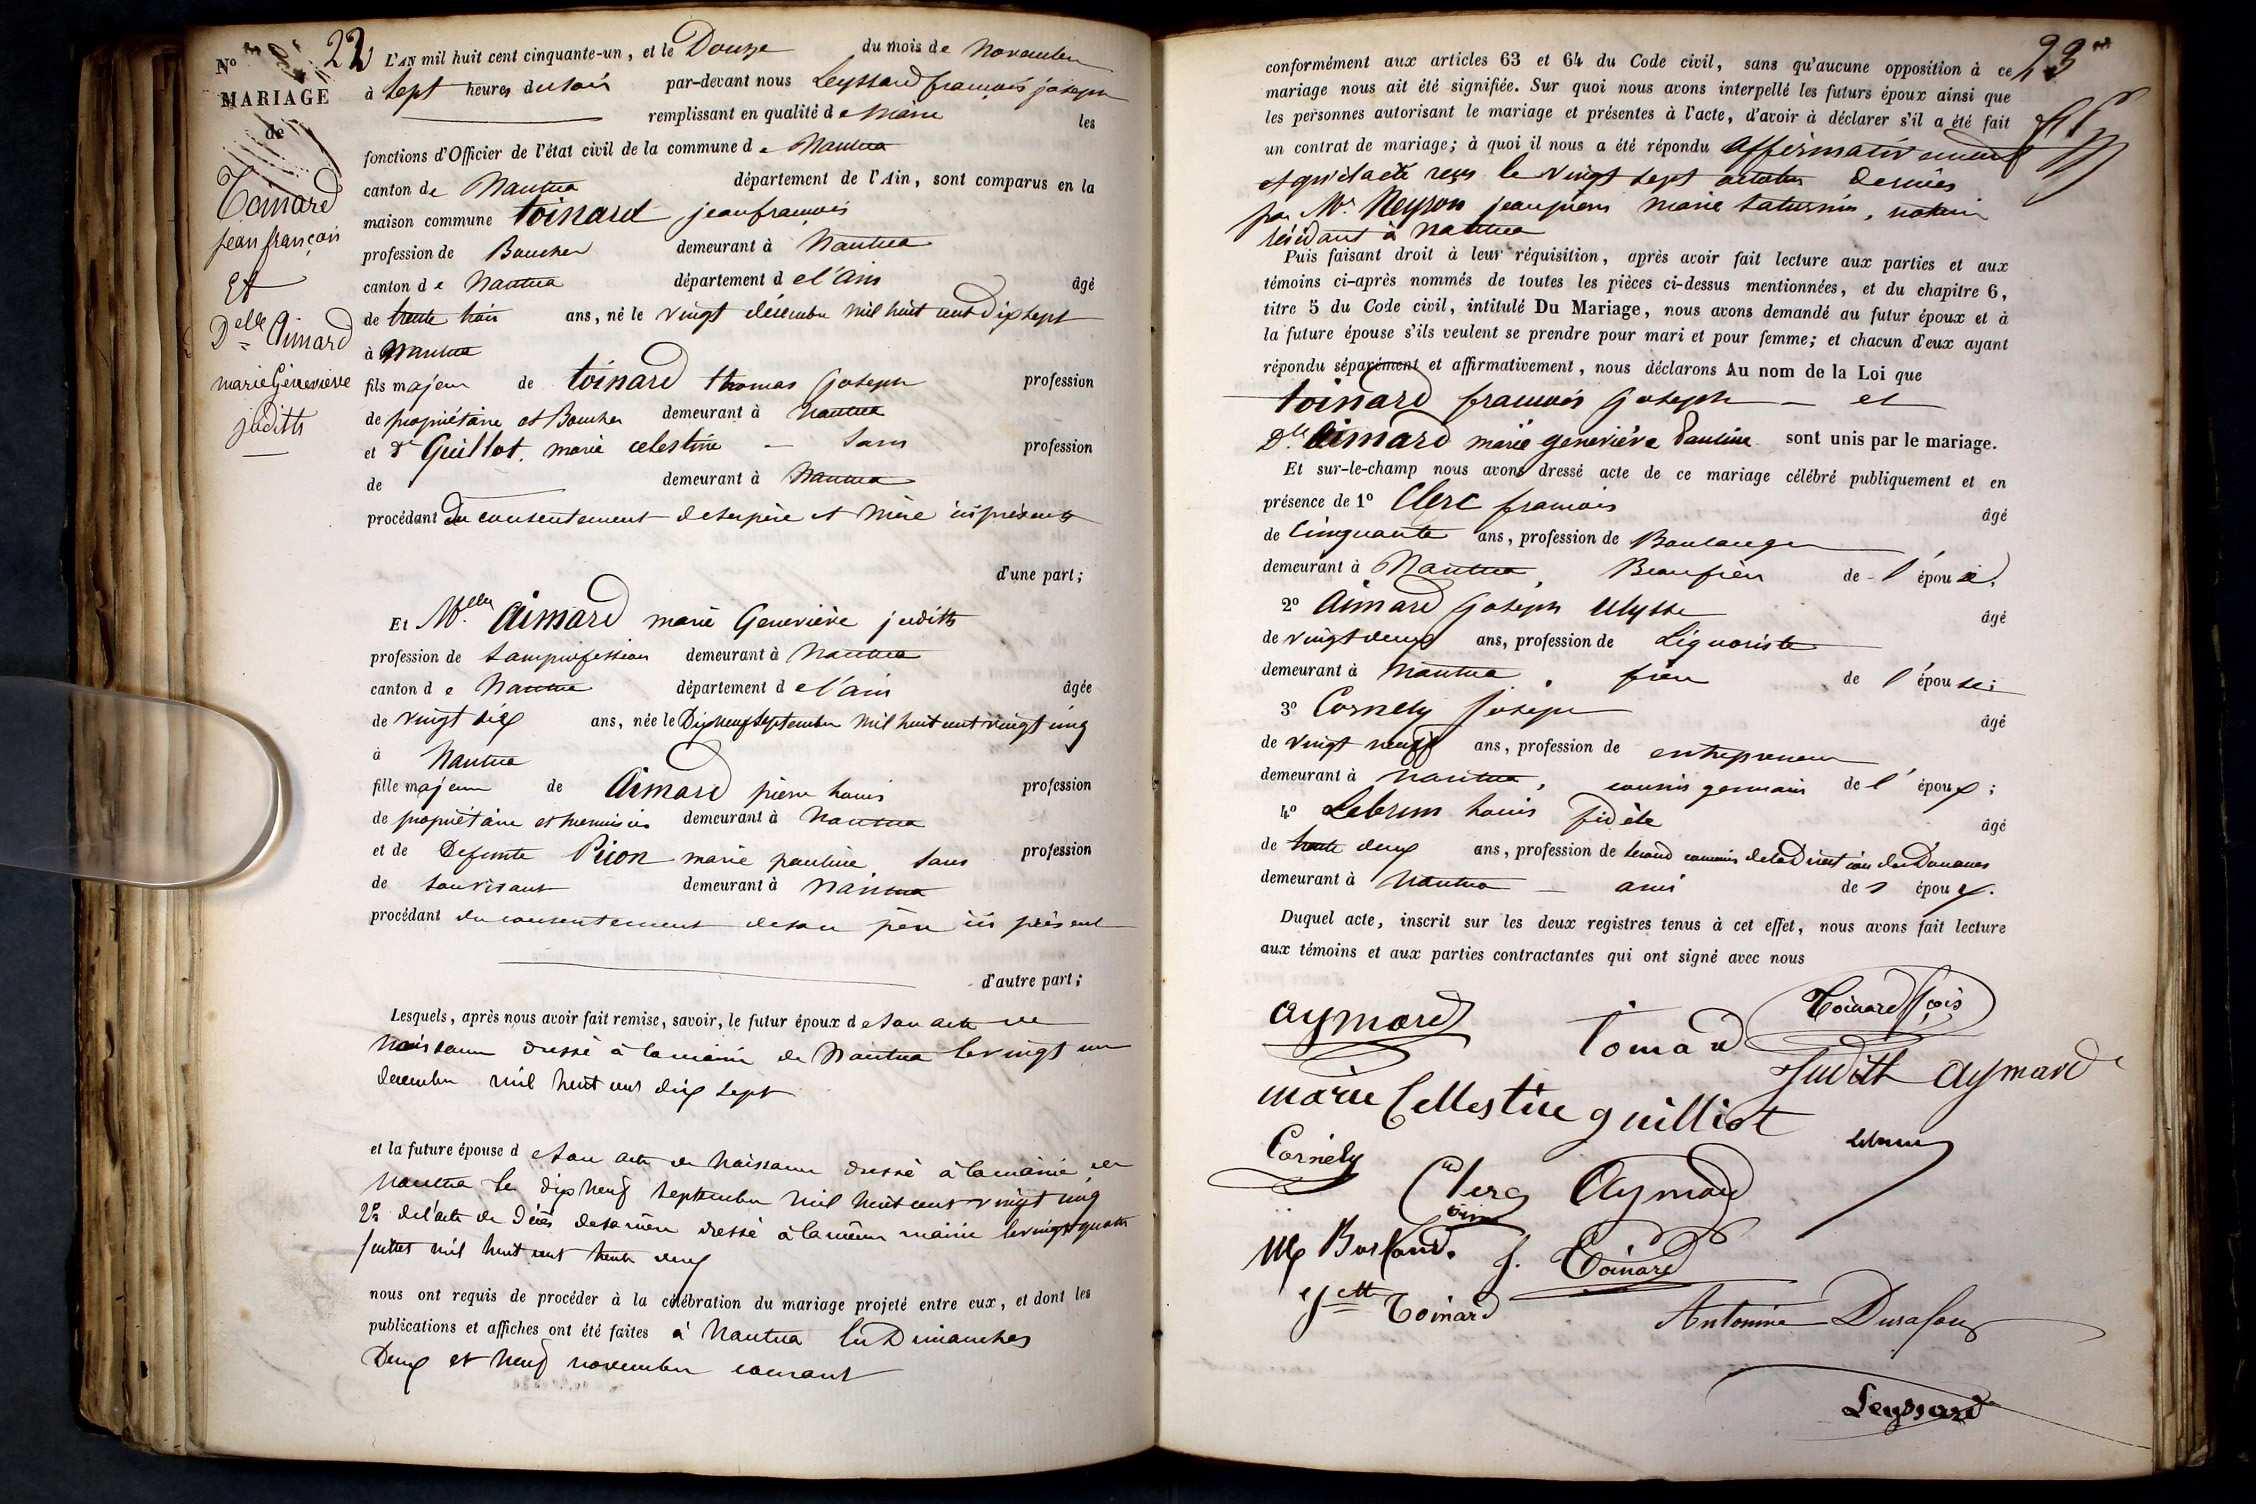 Nº 22
MARIAGE
de
Toinard
jean françois
Et
Delle Aimard
marie Geneviève
judith
L'AN mil huit cent cinquante-un, et le Douze du mois de Novembre
à Sept heures du soir par-devant nous Leyssard françois joseph
remplissant en qualité de Maire les
fonctions d'Officier de l'état civil de la commune de Nantua
canton de Nantua département de l'Ain, sont comparus en la
maison commune toinard jean françois
profession de Boucher demeurant à Nantua
canton de Nantua département de l'ain âgé
de trente trois ans, né le vingt décembre mil huit cent dix sept
à Nantua
fils majeur de toinard thomas Joseph profession
de propriétaire et Boucher demeurant à Nantua
et de Guillot marie celestine – sans profession
de demeurant à Nantua
procédant du consentement de ses père et mère ici présents
d'une part;
Et Mlle Aimard marie Geneviève judith
profession de sans profession demeurant à Nantua
canton de Nantua département de l'ain âgée
de vingt six ans, née le Dix neuf Septembre mil huit cent vingt cinq
à Nantua
fille majeure de Aimard pierre louis profession
de propriétaire et menuisier demeurant à Nantua
et de Defunte Picon marie pauline sans profession
de son vivant demeurant à Nantua
procédant du consentement de son père ici présent
d'autre part;
Lesquels, après nous avoir fait remise, savoir, le futur époux de son acte de
naissance dressé à la mairie de Nantua le vingt un
decembre mil huit cent dix sept
et la future épouse de son acte de naissance dressé à la mairie de
Nantua le dix neuf septembre mil huit cent vingt cinq
2º de l'acte de décès de sa mère dressé à la même mairie le vingt quatre
juillet mil huit cent trente deux
nous ont requis de procéder à la célébration du mariage projeté entre eux, et dont les
publications et affiches ont été faites à Nantua les Dimanches
Deux et neuf novembre courant
23
conformément aux articles 63 et 64 du Code civil, sans qu'aucune opposition à ce
mariage nous ait été signifiée. Sur quoi nous avons interpellé les futurs époux ainsi que
les personnes autorisant le mariage et présentes à l'acte, d'avoir à déclarer s'il a été fait
un contrat de mariage; à quoi il nous a été répondu affirmativement
et qu'il a été reçu le vingt sept octobre dernier
par Mr Neyron jean pierre marie saturnin, notaire
résidant à Nantua
Puis faisant droit à leur réquisition, après avoir fait lecture aux parties et aux
témoins ci-après nommés de toutes les pièces ci-dessus mentionnées, et du chapitre 6,
titre 5 du Code civil, intitulé Du Mariage, nous avons demandé au futur époux et à
la future épouse s'ils veulent se prendre pour mari et pour femme; et chacun d'eux ayant
répondu séparément et affirmativement, nous déclarons Au nom de la Loi que
toinard francois Joseph – et
Dlle Aimard marie geneviève Pauline sont unis par le mariage.
Et sur-le-champ nous avons dressé acte de ce mariage célébré publiquement et en
présence de 1º Clerc francois âgé
de Cinquante ans, profession de Boulanger
demeurant à Nantua, Beaufrère de l'époux;
2º Aimard Joseph Ulysse âgé
de vingt deux ans, profession de Liquoriste
demeurant à Nantua, frère de l'épouse;
3º Cornely Joseph âgé
de vingt neuf ans, profession de entrepreneur
demeurant à Nantua, cousin germain de l'époux;
4º Lebrun louis fidèle âgé
de trente deux ans, profession de second commis de la Direction des Douanes
demeurant à Nantua – ami de l'époux.
Duquel acte, inscrit sur les deux registres tenus à cet effet, nous avons fait lecture
aux témoins et aux parties contractantes qui ont signé avec nous
aymard Toinard Toinard fçois
Judith Aymard
marie Cellestine guilliot
Cornély Lebrun
Clerc Aymard
J. Toinard
Jette Toinard
Antonine Dusafour
Leyssard